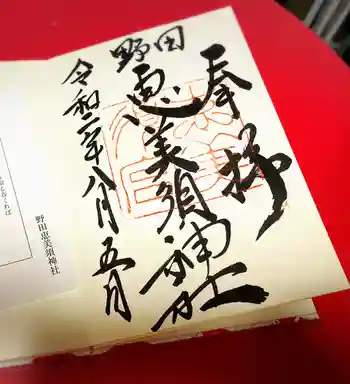 奉拝
野田
恵美須神社
令和二年八月五日
野田恵美須神社